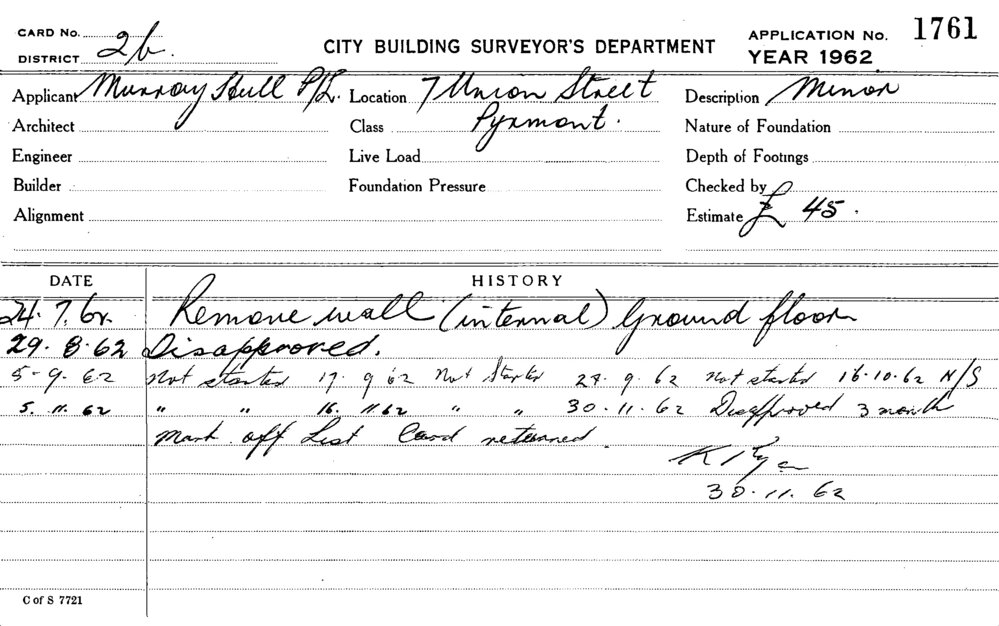 CARD No.
DISTRICT 2b.
CITY BUILDING SURVEYOR'S DEPARTMENT
APPLICATION No. 1761
YEAR 1962
Applicant Murray Hull P/L. Location 7 Union Street Description Minor
Architect Class Pyrmont. Nature of Foundation
Engineer Live Load Depth of Footings
Builder Foundation Pressure Checked by
Alignment Estimate £ 45.
DATE HISTORY
24.7.62. Remove wall (internal) Ground floor
29.8.62 Disapproved.
5-9.62 Not started 17.9.62 Not Started 28.9.62 Not started 16.10.62 N/S
5.11.62 " " 16.11 62 " " 30.11.62 Disapproved 3 month
Mark off List Card returned.
30.11.62
C of S 7721